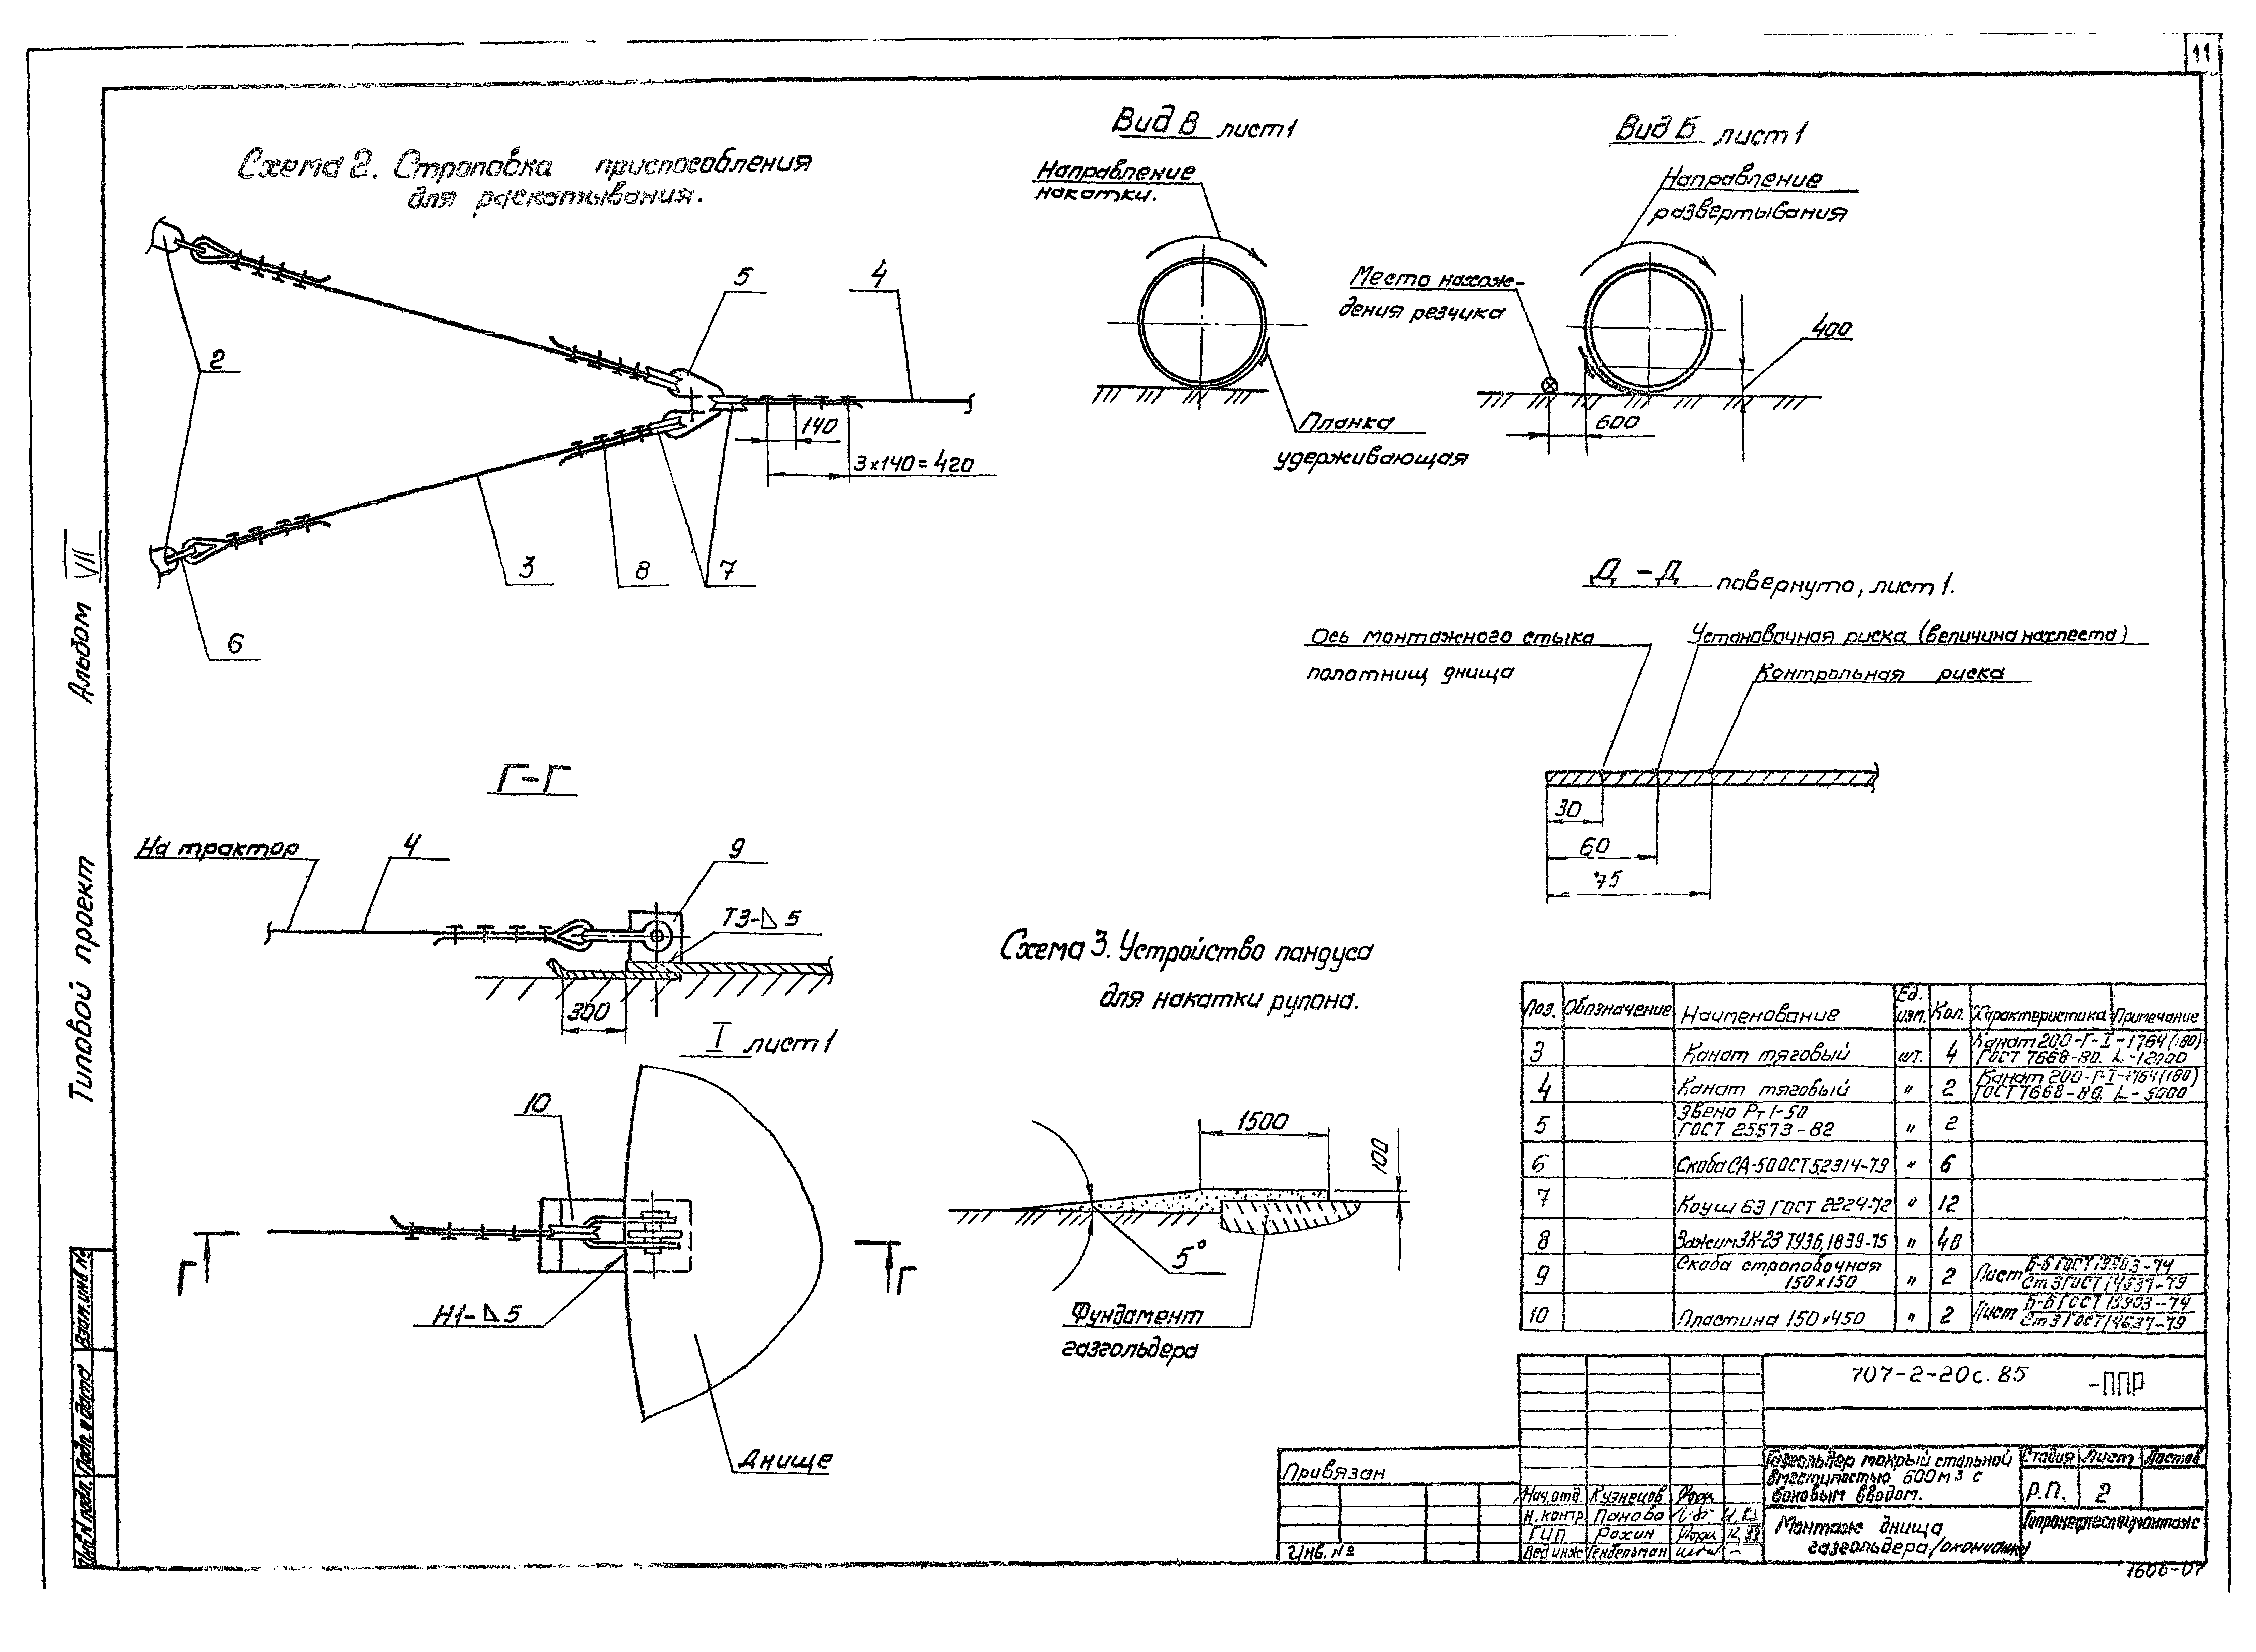 11
Схема 2. Строповка приспособления
для раскатывания.
2
5
4
140
3х140=420
3
8
7
6
Вид В лист 1
Направление
накатки.
Планка
удерживающая
Вид Б лист 1
Направление
развертывания
Место нахож-
дения резчика
400
600
Д-Д повернуто, лист 1.
Ось монтажного стыка
полотнищ днища
Установочная риска (величина нахлеста)
Контрольная риска
30
60
75
Г-Г
На трактор
4
9
Т3-⊿5
300
I лист 1
10
Г
Г
Н1-⊿5
Днище
Схема 3. Устройство пандуса
для накатки рулона.
1500
100
5°
Фундамент
газгольдера
Поз. Обозначение Наименование Ед. изм. Кол. Характеристика Примечание
3 Канат тяговый шт. 4 Канат 20,0-Г-I-1764(180) ГОСТ 7668-80. L-12000
4 Канат тяговый " 2 Канат 200-Г-I-1764(180) ГОСТ 7668-80. L-5000
5 Звено Рт1-50 ГОСТ 25573-82 " 2
6 Скоба СА-50 ОСТ5.2314-79 " 6
7 Коуш 63 ГОСТ 2224-72 " 12
8 Зажим ЗК-23 ТУ36,1839-75 " 48
9 Скоба строповочная 150х150 " 2 Лист Б-6 ГОСТ 19903-74 Ст3 ГОСТ 14637-79
10 Пластина 150х450 " 2 Лист Б-6 ГОСТ 19903-74 Ст3 ГОСТ 14637-79
707-2-20с.85 -ППР
Газгольдер мокрый стальной
вместимостью 600м3 с
боковым вводом.
Стадия Лист Листов
Р.П. 2
Монтаж днища
газгольдера/окончание/
Гипронефтеспецмонтаж
Привязан
Инв. №
Нач.отд. Кузнецов
Н.контр Панова
ГИП Рохин
Вед инж Гендельман
1606-07
Альбом VII
Типовой проект
Взам.инв.№
Подп. и дата
Инв.№ подл.